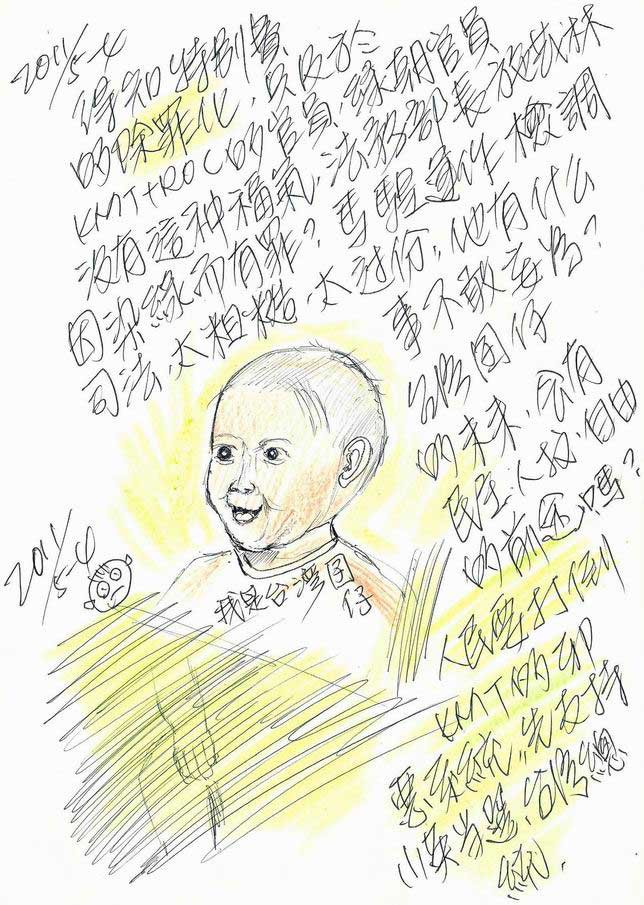 2011/5-4
得知特別費
的除罪化,只及於
KMT+ROC的官員,綠朝官員
沒有這种福氣,法務部長施茂林
因染綠而有罪?馬騜連任 檢調
司法,太粗糙,太过份,他有什么
事不敢妄為?
台灣囝仔
的未来,会有
民主,人权,自由
的前途嗎?
2011/5-4
我是台湾囝
仔
人民要打倒
KMT的邪
惡系統,先支持
小英当選,台灣總
統.